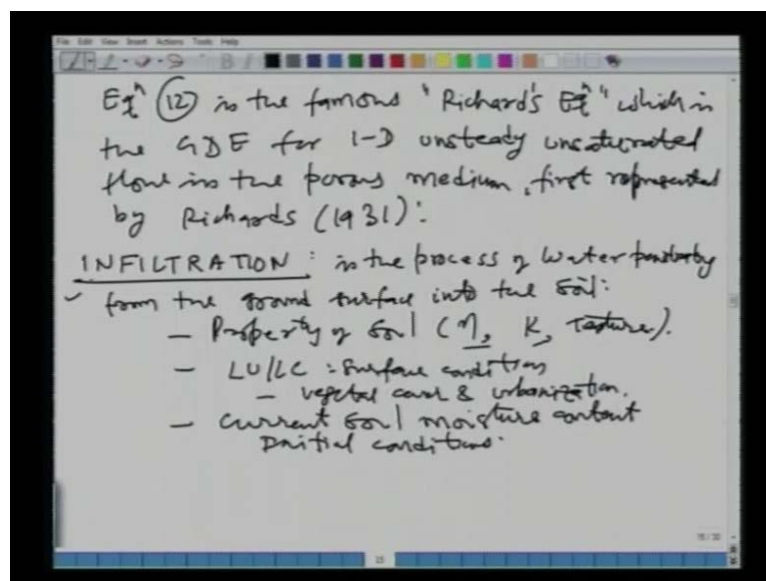 File Edit View Insert Actions Tools Help
Eqⁿ (12) is the famous "Richard's Eqⁿ" which is
the GDE for 1-D unsteady unsaturated
flow in the porous medium, first represented
by Richards (1931):
INFILTRATION : is the process of water
from the ground surface into the soil:
- Property of soil (η, K, Texture).
- LU/LC : surface condition
- vegetal cover & urbanization.
- current soil moisture content
Initial conditions.
15